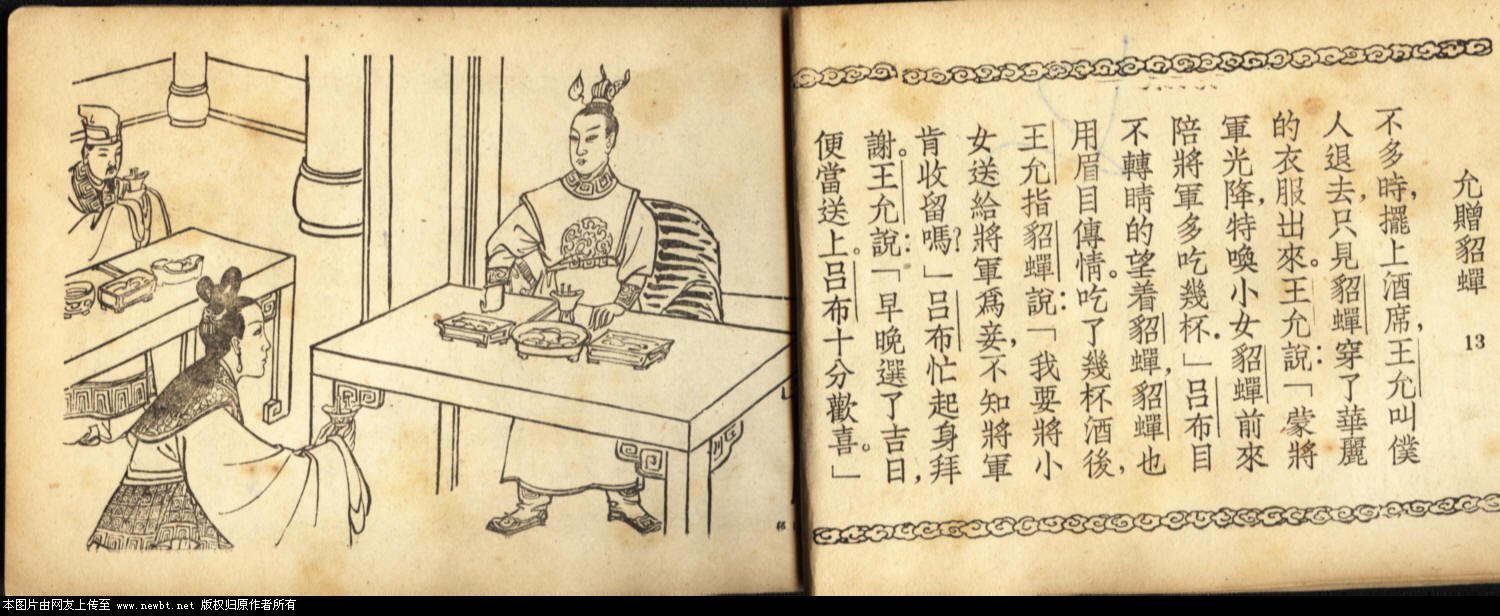 允贈貂蟬 13
不多時,擺上酒席,王允叫僕
人退去,只見貂蟬穿了華麗
的衣服出來。王允說:「蒙將
軍光降,特喚小女貂蟬前來
陪將軍多吃幾杯.」呂布目
不轉睛的望着貂蟬,貂蟬也
用眉目傳情。吃了幾杯酒後,
王允指貂蟬說:「我要將小
女送給將軍爲妾,不知將軍
肯收留嗎?」呂布忙起身拜
謝。王允說:「早晚選了吉日,
便當送上。呂布十分歡喜。」
本图片由网友上传至 www.newbt.net 版权归原作者所有